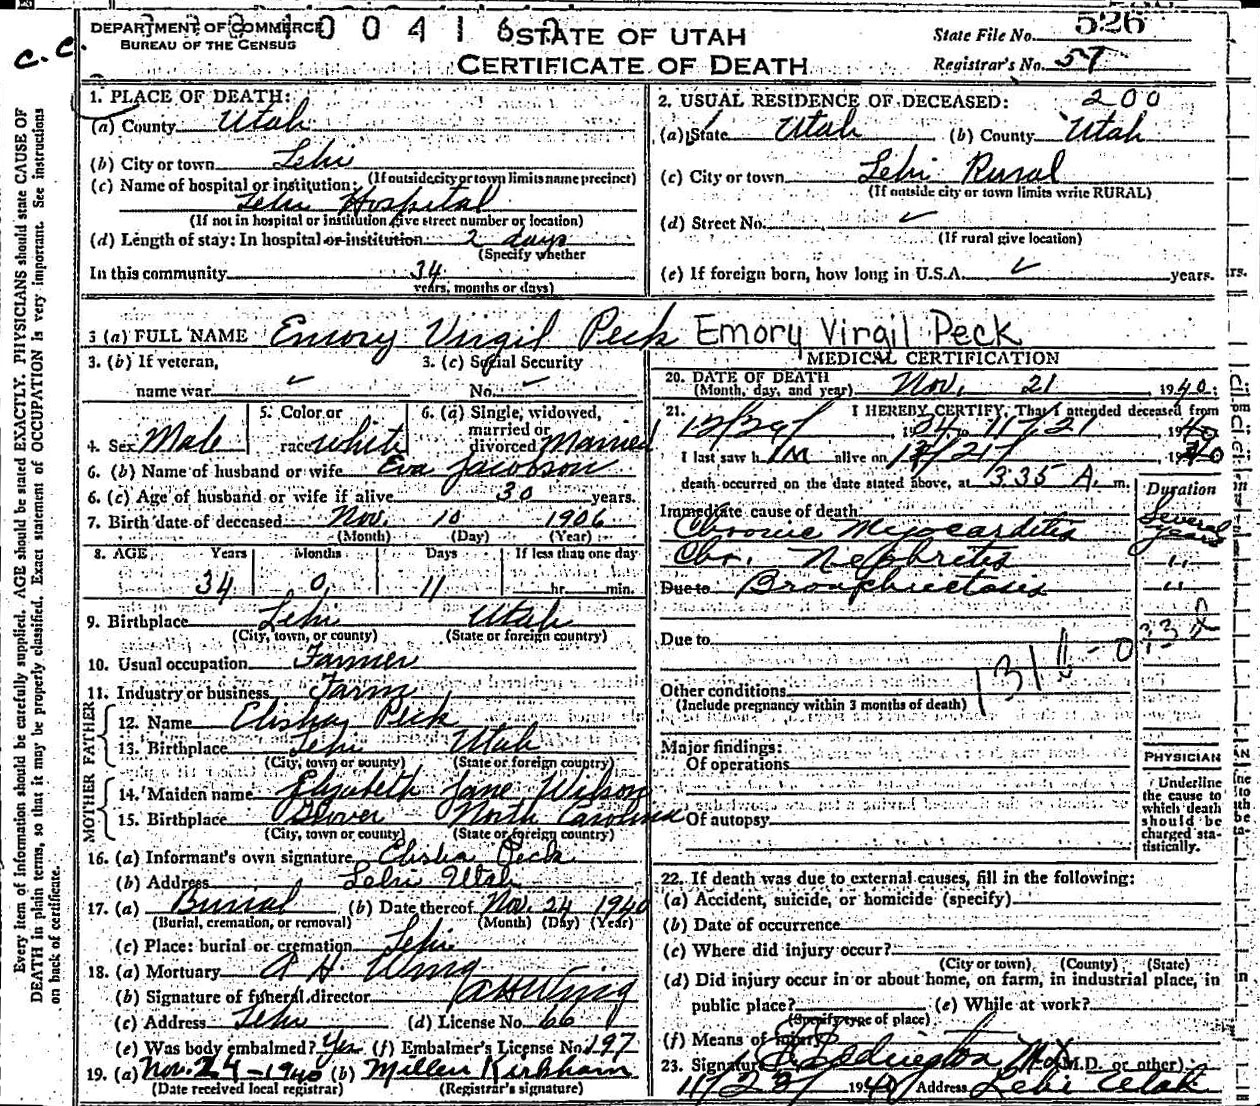 C. C.
DEPARTMENT OF COMMERCE
BUREAU OF THE CENSUS
0 0 4 1 6
STATE OF UTAH
CERTIFICATE OF DEATH
State File No. 526
Registrar's No. 57
Every item of information should be carefully supplied. AGE should be stated EXACTLY. PHYSICIANS should state CAUSE OF
DEATH in plain terms, so that it may be properly classified. Exact statement of OCCUPATION is very important. See instructions
on back of certificate.
1. PLACE OF DEATH:
(a) County Utah
(b) City or town Lehi
(If outside city or town limits name precinct)
(c) Name of hospital or institution:
Lehi Hospital
(If not in hospital or institution give street number or location)
(d) Length of stay: In hospital or institution 2 days
(Specify whether
In this community 34
years, months or days)
2. USUAL RESIDENCE OF DECEASED: 200
(a) State Utah (b) County Utah
(c) City or town Lehi Rural
(If outside city or town limits write RURAL)
(d) Street No. ✓
(If rural give location)
(e) If foreign born, how long in U.S.A. ✓ years.
3 (a) FULL NAME Emory Virgil Peck Emory Virgil Peck
3. (b) If veteran,
name war ✓
3. (c) Social Security
No. ✓
4. Sex Male
5. Color or
race white
6. (a) Single, widowed,
married or
divorced Married
6. (b) Name of husband or wife Eva Jacobson
6. (c) Age of husband or wife if alive 30 years.
7. Birth date of deceased Nov. 10 1906
(Month) (Day) (Year)
8. AGE Years Months Days If less than one day
34 0 11 hr. min.
9. Birthplace Lehi Utah
(City, town, or county) (State or foreign country)
10. Usual occupation Farmer
11. Industry or business Farm
FATHER
12. Name Elisha Peck
13. Birthplace Lehi Utah
(City, town or county) (State or foreign country)
MOTHER
14. Maiden name Elizabeth Jane Wilson
15. Birthplace Glover North Carolina
(City, town or county) (State or foreign country)
16. (a) Informant's own signature Elisha Peck
(b) Address Lehi Utah
17. (a) Burial (b) Date thereof Nov. 24 1940
(Burial, cremation, or removal) (Month) (Day) (Year)
(c) Place: burial or cremation Lehi
18. (a) Mortuary A H. Wing
(b) Signature of funeral director A H Wing
(c) Address Lehi (d) License No. 66
(e) Was body embalmed? Yes (f) Embalmer's License No. 197
19. (a) Nov. 24-1940 (b) Millen Kirkham
(Date received local registrar) (Registrar's signature)
MEDICAL CERTIFICATION
20. DATE OF DEATH
(Month, day, and year) Nov. 21 1940;
21. I HEREBY CERTIFY, That I attended deceased from
12/29/ 1934 to 11/21 1940
I last saw him alive on 11/21/, 1940
death occurred on the date stated above, at 3:35 A. m.
Duration
Immediate cause of death
Chronic Myocarditis Several years
Chr. Nephritis "
Due to Bronchiectosis "
Due to
131
Other conditions
(Include pregnancy within 3 months of death)
Major findings:
Of operations
Of autopsy
PHYSICIAN
Underline
the cause to
which death
should be
charged sta-
tistically.
22. If death was due to external causes, fill in the following:
(a) Accident, suicide, or homicide (specify)
(b) Date of occurrence
(c) Where did injury occur?
(City or town) (County) (State)
(d) Did injury occur in or about home, on farm, in industrial place, in
public place? (e) While at work?
(Specify type of place)
(f) Means of injury
23. Signature Eddington M.D. (M.D. or other)
11/23/ 1940 Address Lehi Utah